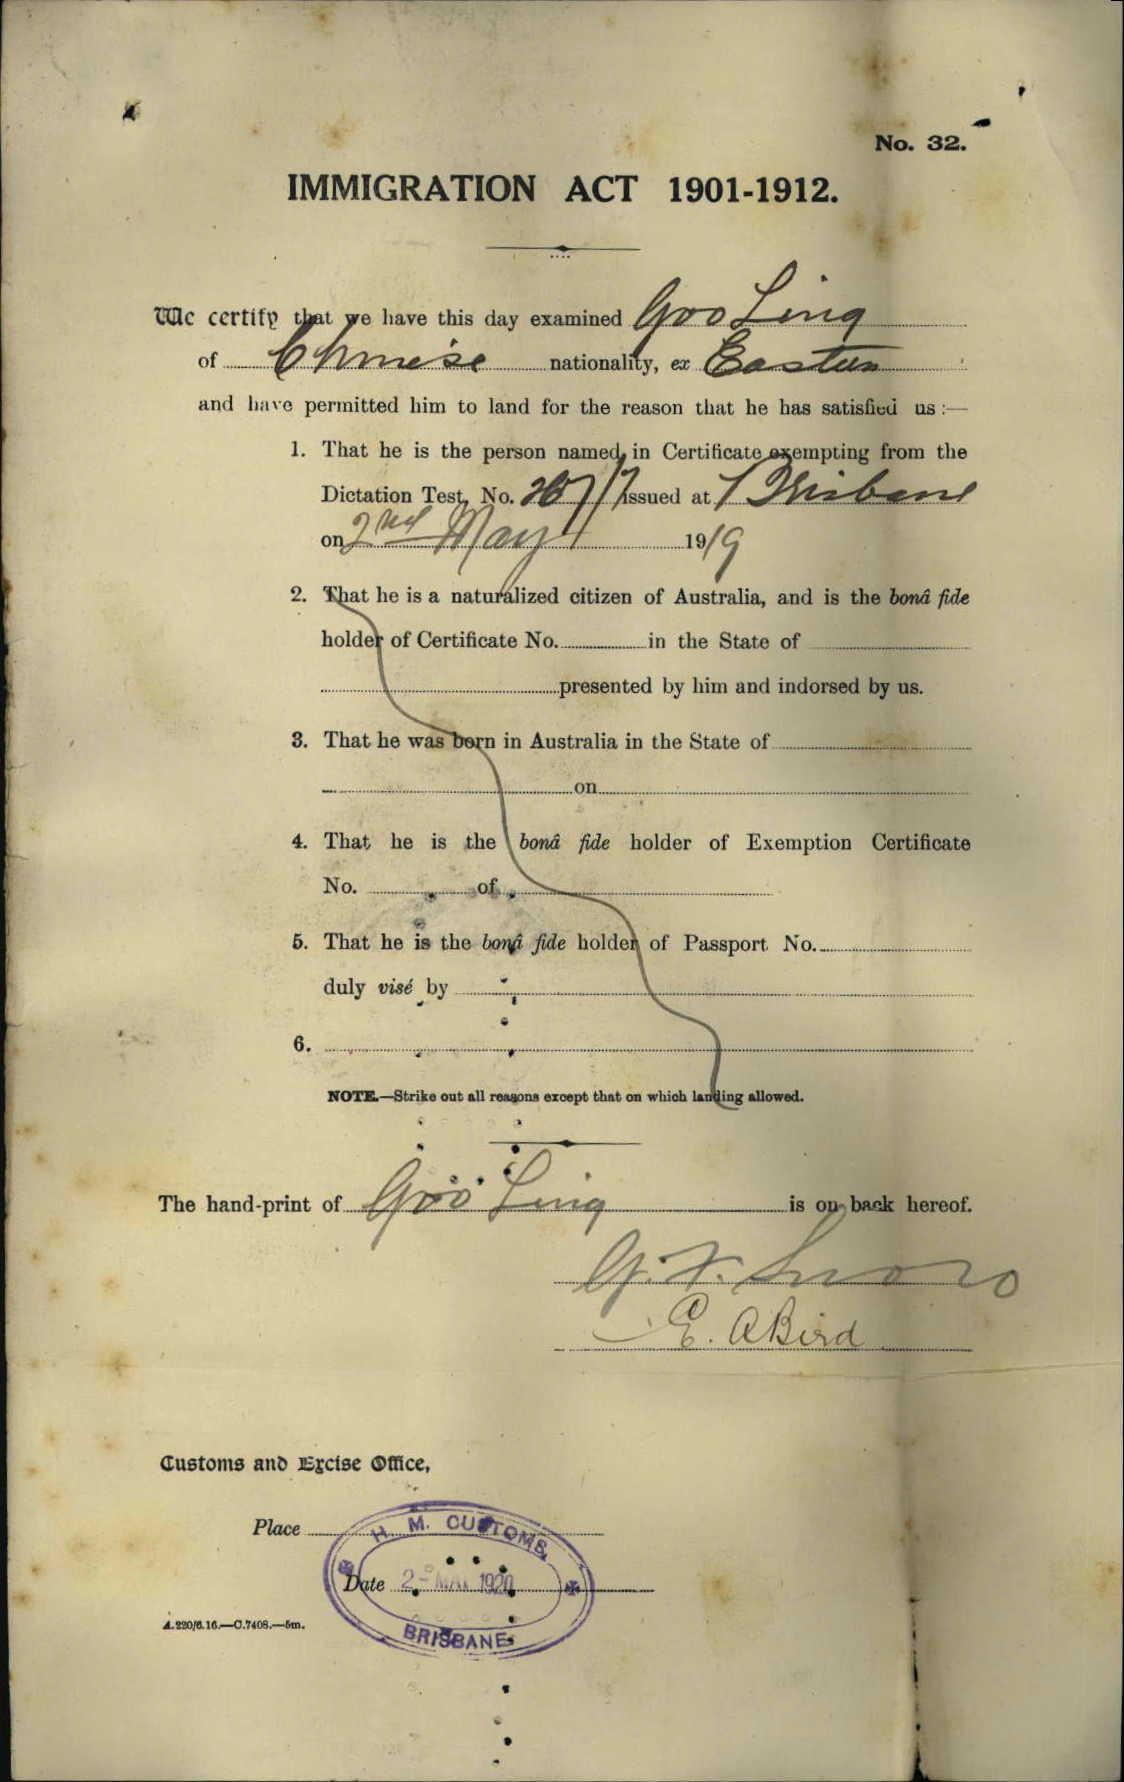 No. 32.
IMMIGRATION ACT 1901-1912.
We certify that we have this day examined Goo Ling
of Chinese nationality, ex Eastern
and have permitted him to land for the reason that he has satisfied us :—
1. That he is the person named in Certificate exempting from the
Dictation Test, No. 267/7 issued at Brisbane
on 2nd May 1919
2. That he is a naturalized citizen of Australia, and is the bonâ fide
holder of Certificate No. in the State of
presented by him and indorsed by us.
3. That he was born in Australia in the State of
on
4. That he is the bonâ fide holder of Exemption Certificate
No. of
5. That he is the bonâ fide holder of Passport No.
duly visé by
6.
NOTE.—Strike out all reasons except that on which landing allowed.
The hand-print of Goo Ling is on back hereof.
E. A Bird
Customs and Excise Office,
Place
H. M. CUSTOMS,
Date 2 - MAY 1920
BRISBANE
A.220/6.16.—C.7408.—5m.